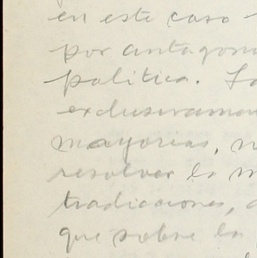 en este caso
por antagoni
política. La
exclusivamen
mayorías, n
resolver la m
tradiciones, a
que sobre la